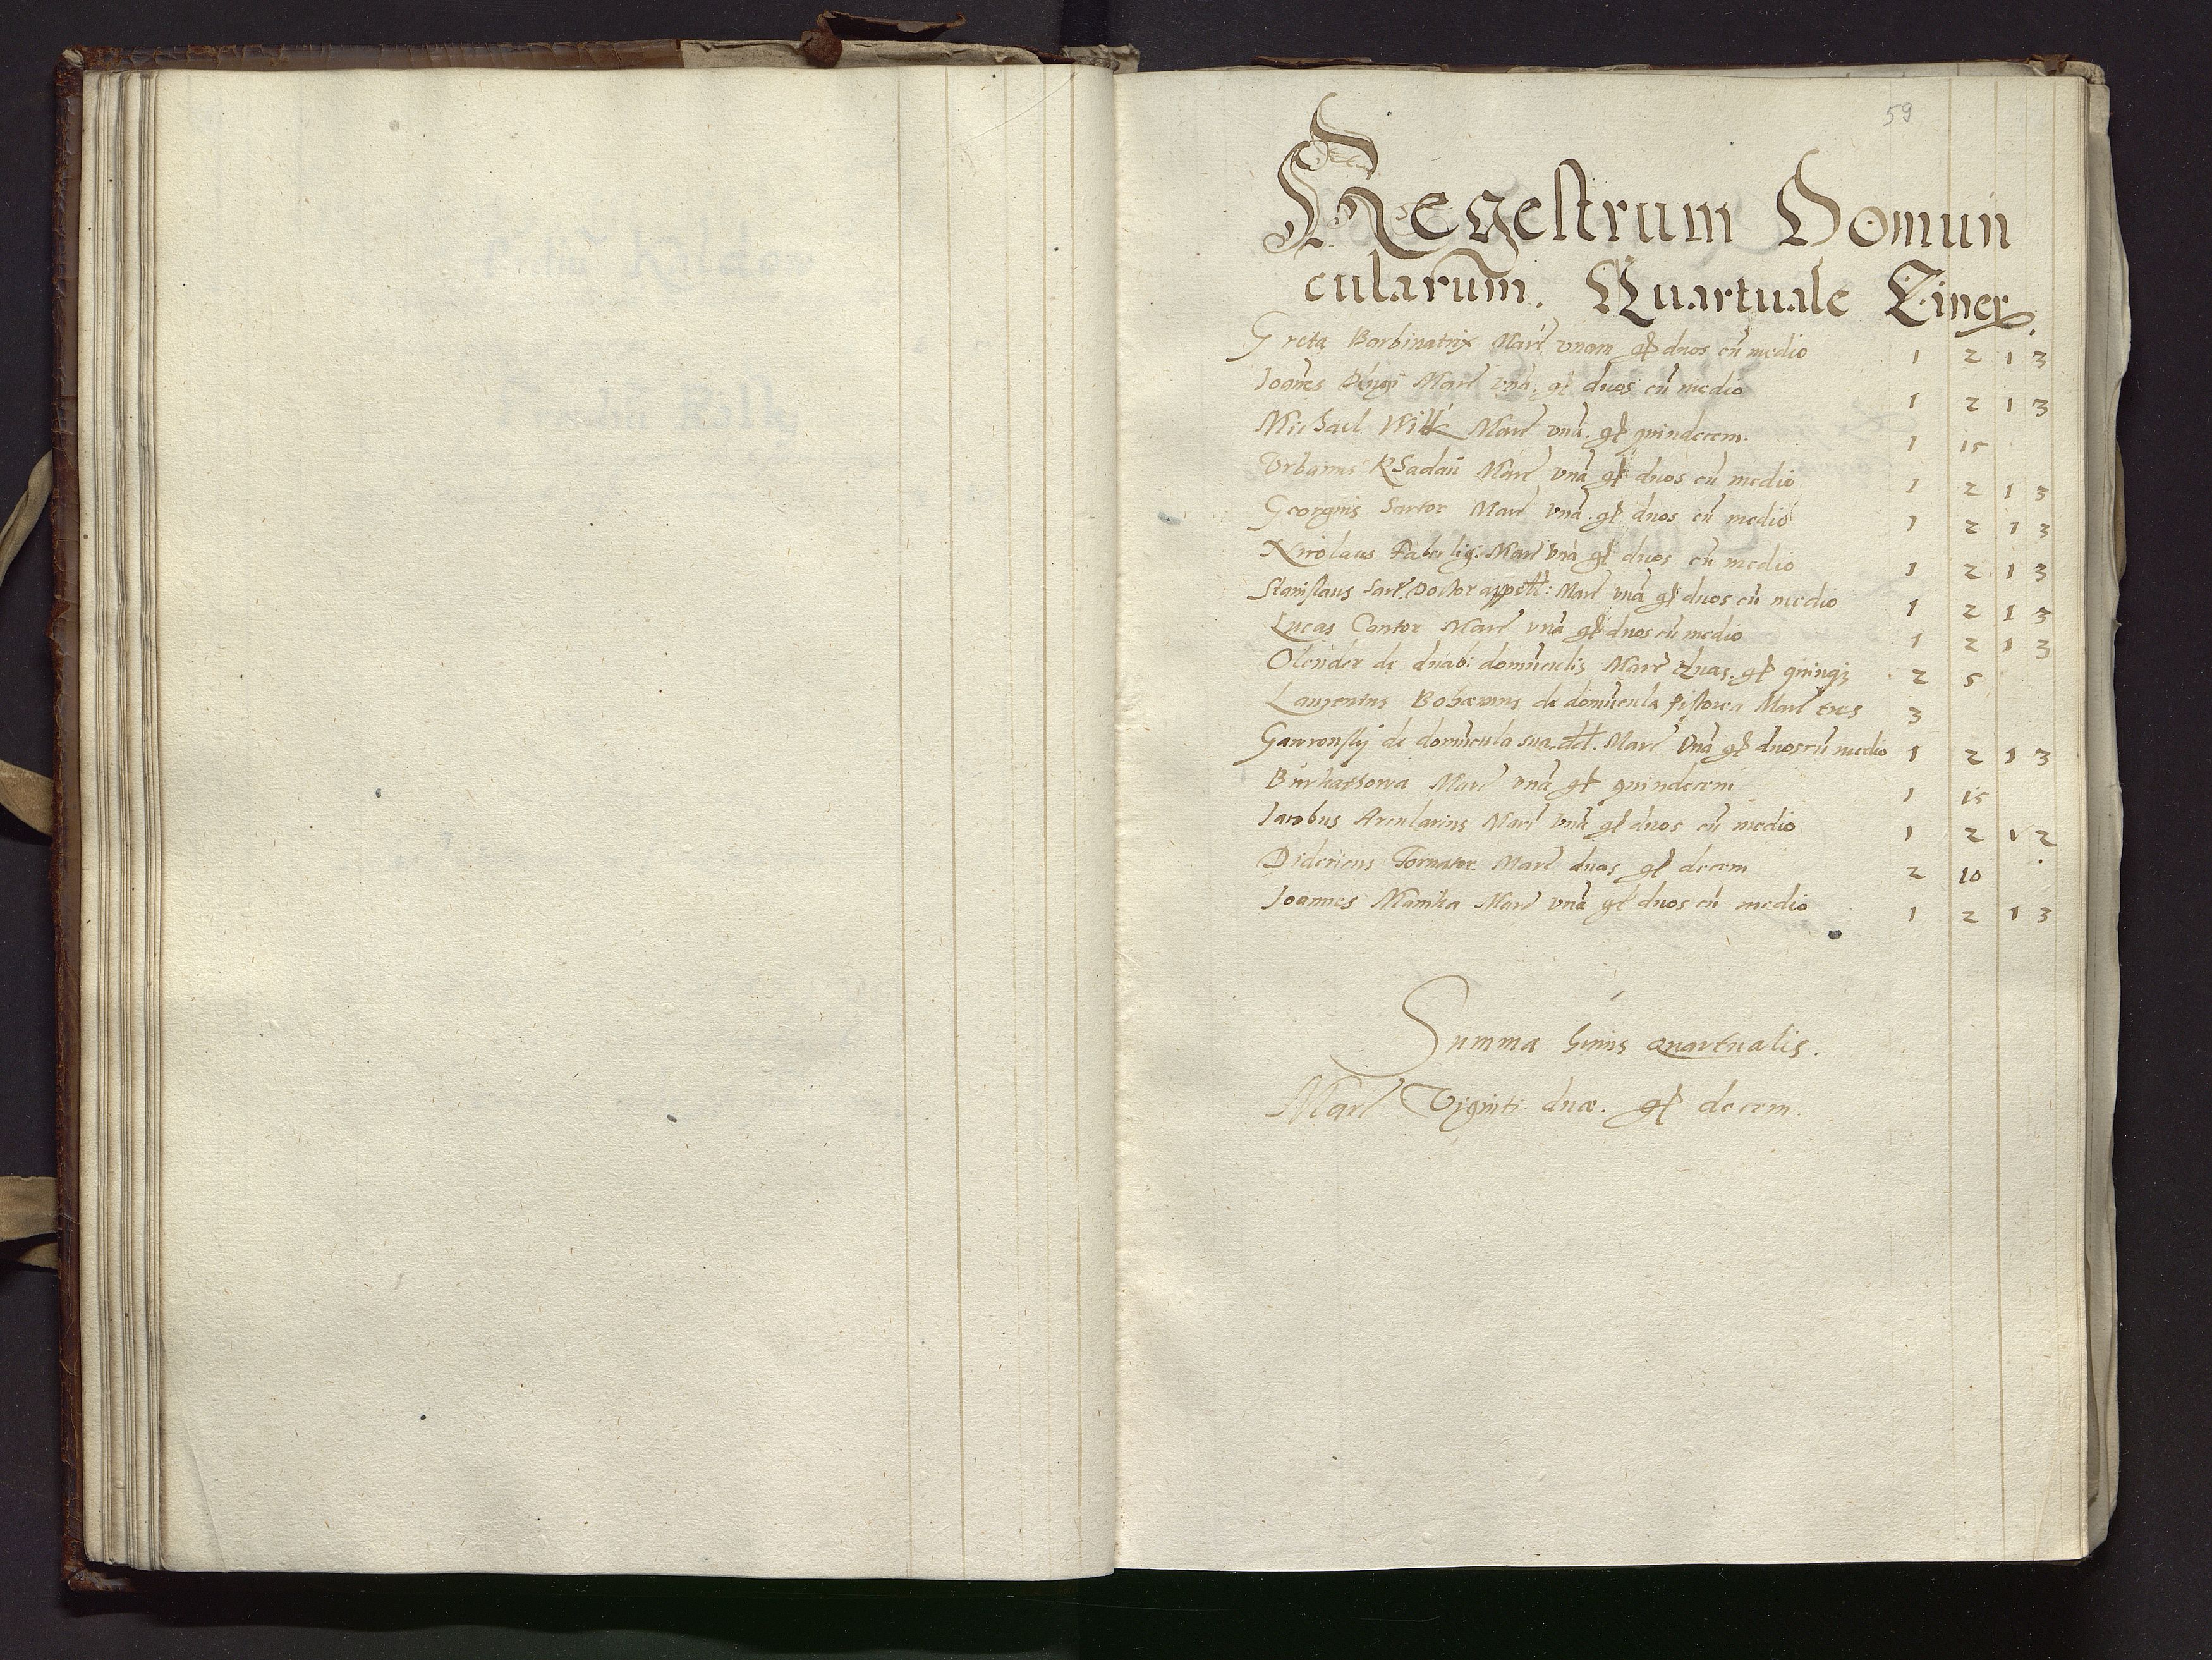 59
Regestrum Domun
cularum. Quartuale Ciner.
Greta Barbinatrix Marc unam gr duos cũ medio 1 2 1 3
Joañes Marc unã. gr duos cũ medio 1 2 1 3
Michael Wilk Marc unã. gr quindecem. 1 15
Urbanus Rhadaũ Marc unã gr duos cũ medio 1 2 1 3
Georgius Sartor Marc unã. gr duos cũ medio 1 2 1 3
Nicolaus Faber lig: Marc unã gr duos cũ medio 1 2 1 3
Stanislaus Sart. Doctor appell: Marc unã gr duos cũ medio 1 2 1 3
Lucas Cantor Marc unã gr duos cũ medio 1 2 1 3
Olender de duab: domũculis Marc duas. gr quinqȝ 2 5
Laurentius Bohemus de domũcula pistorea Marc tres 3
Gawronsky de domũcula sua. Marc unã gr duos cũ medio 1 2 1 3
Burkathowa Marc unã gr quindecem 1 15
Jacobus Arcularius Marc unã gr duos cũ medio 1 2 1 2
Didericus Tornator. Marc duas gr decem 2 10
Joannes Mamka Marc unã gr duos cũ medio 1 2 1 3
Summa huius Quartualis.
Marc Viginti duæ. gr decem.